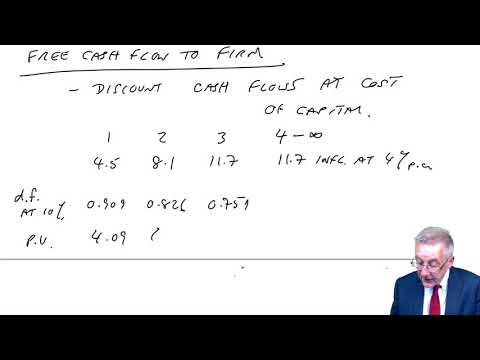 FREE CASH FLOW TO FIRM
- DISCOUNT CASH FLOWS AT COST
OF CAPITAL.
1 2 3 4 - ∞
4.5 8.1 11.7 11.7 INFL. AT 4% p.a.
d.f.
AT 10% 0.909 0.826 0.751
P.V. 4.09